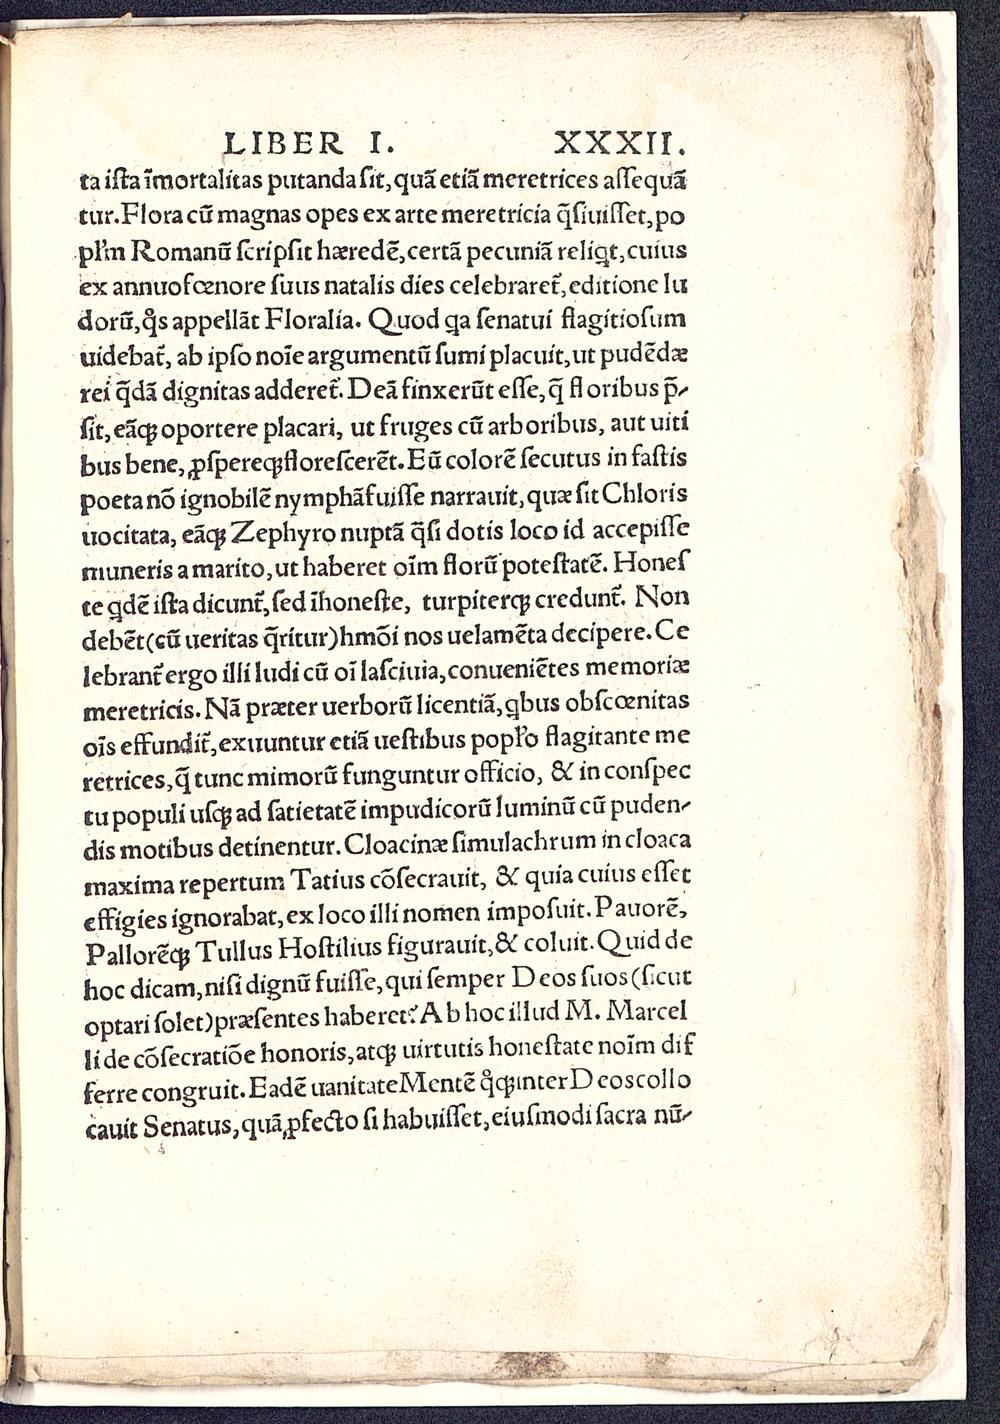 LIBER I. XXXII.
ta iſta īmortalitas putanda ſit, quā etiā meretrices aſſequā
tur. Flora cū magnas opes ex arte meretricia q̄ſiuiſſet, po
pl'm Romanū ſcripſit hæredē, certā pecuniā reliqt, cuius
ex annuo fœnore ſuus natalis dies celebraret̃, editione lu
dorū, q̊s appellāt Floralia. Quod qa ſenatui flagitioſum
uidebat̃, ab ipſo noīe argumentū ſumi placuit, ut pudēdæ
rei q̄dā dignitas adderet̃. Deā finxerūt eſſe, q̄ floribus p̄-
ſit, eāꝙ oportere placari, ut fruges cū arboribus, aut uiti
bus bene, ꝓſpereꝙ floreſcerēt. Eū colorē ſecutus in faſtis
poeta nō ignobilē nymphā fuiſſe narrauit, quæ ſit Chloris
uocitata, eāꝙ Zephyro nuptā q̄ſi dotis loco id accepiſſe
muneris a marito, ut haberet oīm florū poteſtatē. Honeſ
te qdē iſta dicunt̃, ſed īhoneſte, turpiterꝙ credunt̃. Non
debēt (cū ueritas q̄ritur) hmōi nos uelamēta decipere. Ce
lebrant̃ ergo illi ludi cū oī laſciuia, conueniētes memoriæ
meretricis. Nā præter uerborū licentiā, qbus obſcœnitas
oīs effundit̃, exuuntur etiā ueſtibus popl'o flagitante me
retrices, q̄ tunc mimorū funguntur officio, & in conſpec
tu populi uſꝙ ad ſatietatē impudicorū luminū cū puden-
dis motibus detinentur. Cloacinæ ſimulachrum in cloaca
maxima repertum Tatius cōſecrauit, & quia cuius eſſet
effigies ignorabat, ex loco illi nomen impoſuit. Pauorē,
Pallorēꝙ Tullus Hoſtilius figurauit, & coluit. Quid de
hoc dicam, niſi dignū fuiſſe, qui ſemper Deos ſuos (ſicut
optari ſolet) præſentes haberet? Ab hoc illud M. Marcel
li de cōſecratiōe honoris, atꝙ uirtutis honeſtate noīm dif
ferre congruit. Eadē uanitate Mentē q̊ꝙ inter Deos collo
cauit Senatus, quā ꝓfecto ſi habuiſſet, eiuſmodi ſacra nū-